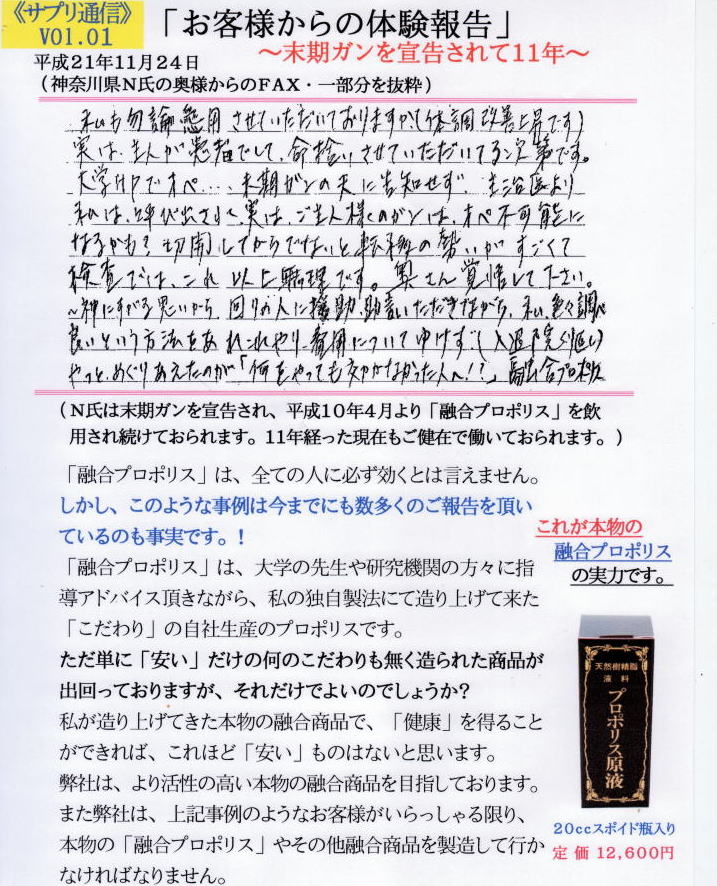 《サプリ通信》
VOl.01
「お客様からの体験報告」
～末期ガンを宣告されて11年～
平成21年11月24日
（神奈川県N氏の奥様からのFAX・一部分を抜粋）
私も勿論 用させていただいておりますが（体調改善上昇です）
実は、主人が患者でして、命拾いさせていただいてる次第です。
大学HPでオペ.... 末期ガンの夫に告知せず、主治医より
私は、呼び出されて、実は、ご主人様のガンは、オペ不可能に
なるかも？切開してからでないと転移の勢いがすごくて
検査では、これ以上無理です。奥さん覚悟して下さい。
～神にすがる思いから、回りの人に援助、助言いただきながら、私、色々調べ
良いという方法をあれこれやり、費用について行けず（入退院くり返し）
やっと、めぐりあえたのが「何をやっても効かなかった人へ!?」融合プロポリス
（N氏は末期ガンを宣告され、平成10年4月より「融合プロポリス」を飲
用され続けておられます。11年経った現在もご健在で働いておられます。）
「融合プロポリス」は、全ての人に必ず効くとは言えません。
しかし、このような事例は今までにも数多くのご報告を頂い
ているのも事実です。！
「融合プロポリス」は、大学の先生や研究機関の方々に指
導アドバイス頂きながら、私の独自製法にて造り上げて来た
「こだわり」の自社生産のプロポリスです。
ただ単に「安い」だけの何のこだわりも無く造られた商品が
出回っておりますが、それだけでよいのでしょうか？
私が造り上げてきた本物の融合商品で、「健康」を得ること
ができれば、これほど「安い」ものはないと思います。
弊社は、より活性の高い本物の融合商品を目指しております。
また弊社は、上記事例のようなお客様がいらっしゃる限り、
本物の「融合プロポリス」やその他融合商品を製造して行か
なければなりません。
これが本物の
融合プロポリス
の実力です。
天然樹精脂
液料
プロポリス原液
20ccスポイド瓶入り
定価 12,600円